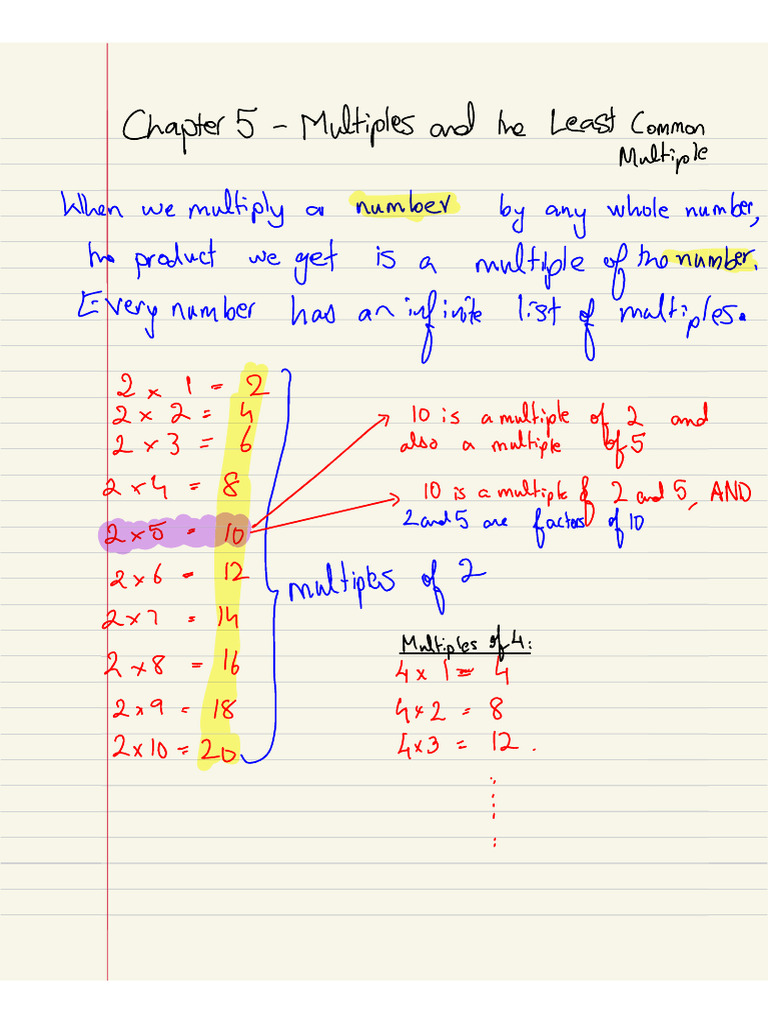 Chapter 5 - Multiples and the Least Common
Multiple
When we multiply a number by any whole number,
the product we get is a multiple of the number.
Every number has an infinite list of multiples.
2 × 1 = 2
2 × 2 = 4
2 × 3 = 6
2 × 4 = 8
2 × 5 = 10
2 × 6 = 12
2 × 7 = 14
2 × 8 = 16
2 × 9 = 18
2 × 10 = 20
multiples of 2
10 is a multiple of 2 and
also a multiple of 5
10 is a multiple of 2 and 5, AND
2 and 5 are factors of 10
Multiples of 4:
4 × 1 = 4
4 × 2 = 8
4 × 3 = 12 .